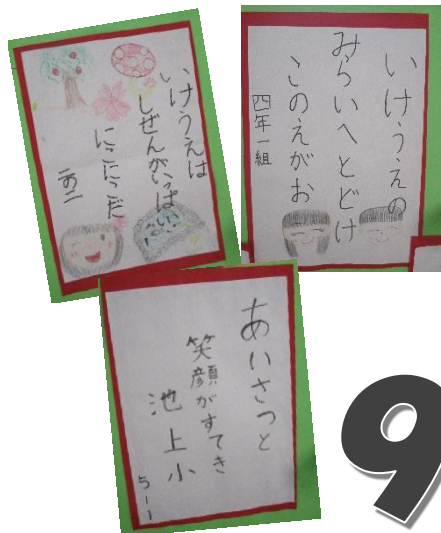 いけうえは
しぜんがいっぱい
にこにこだ
二の二
いけうえの
みらいへとどけ
このえがお
四年一組
あいさつと
笑顔がすてき
池上小
5-1
9